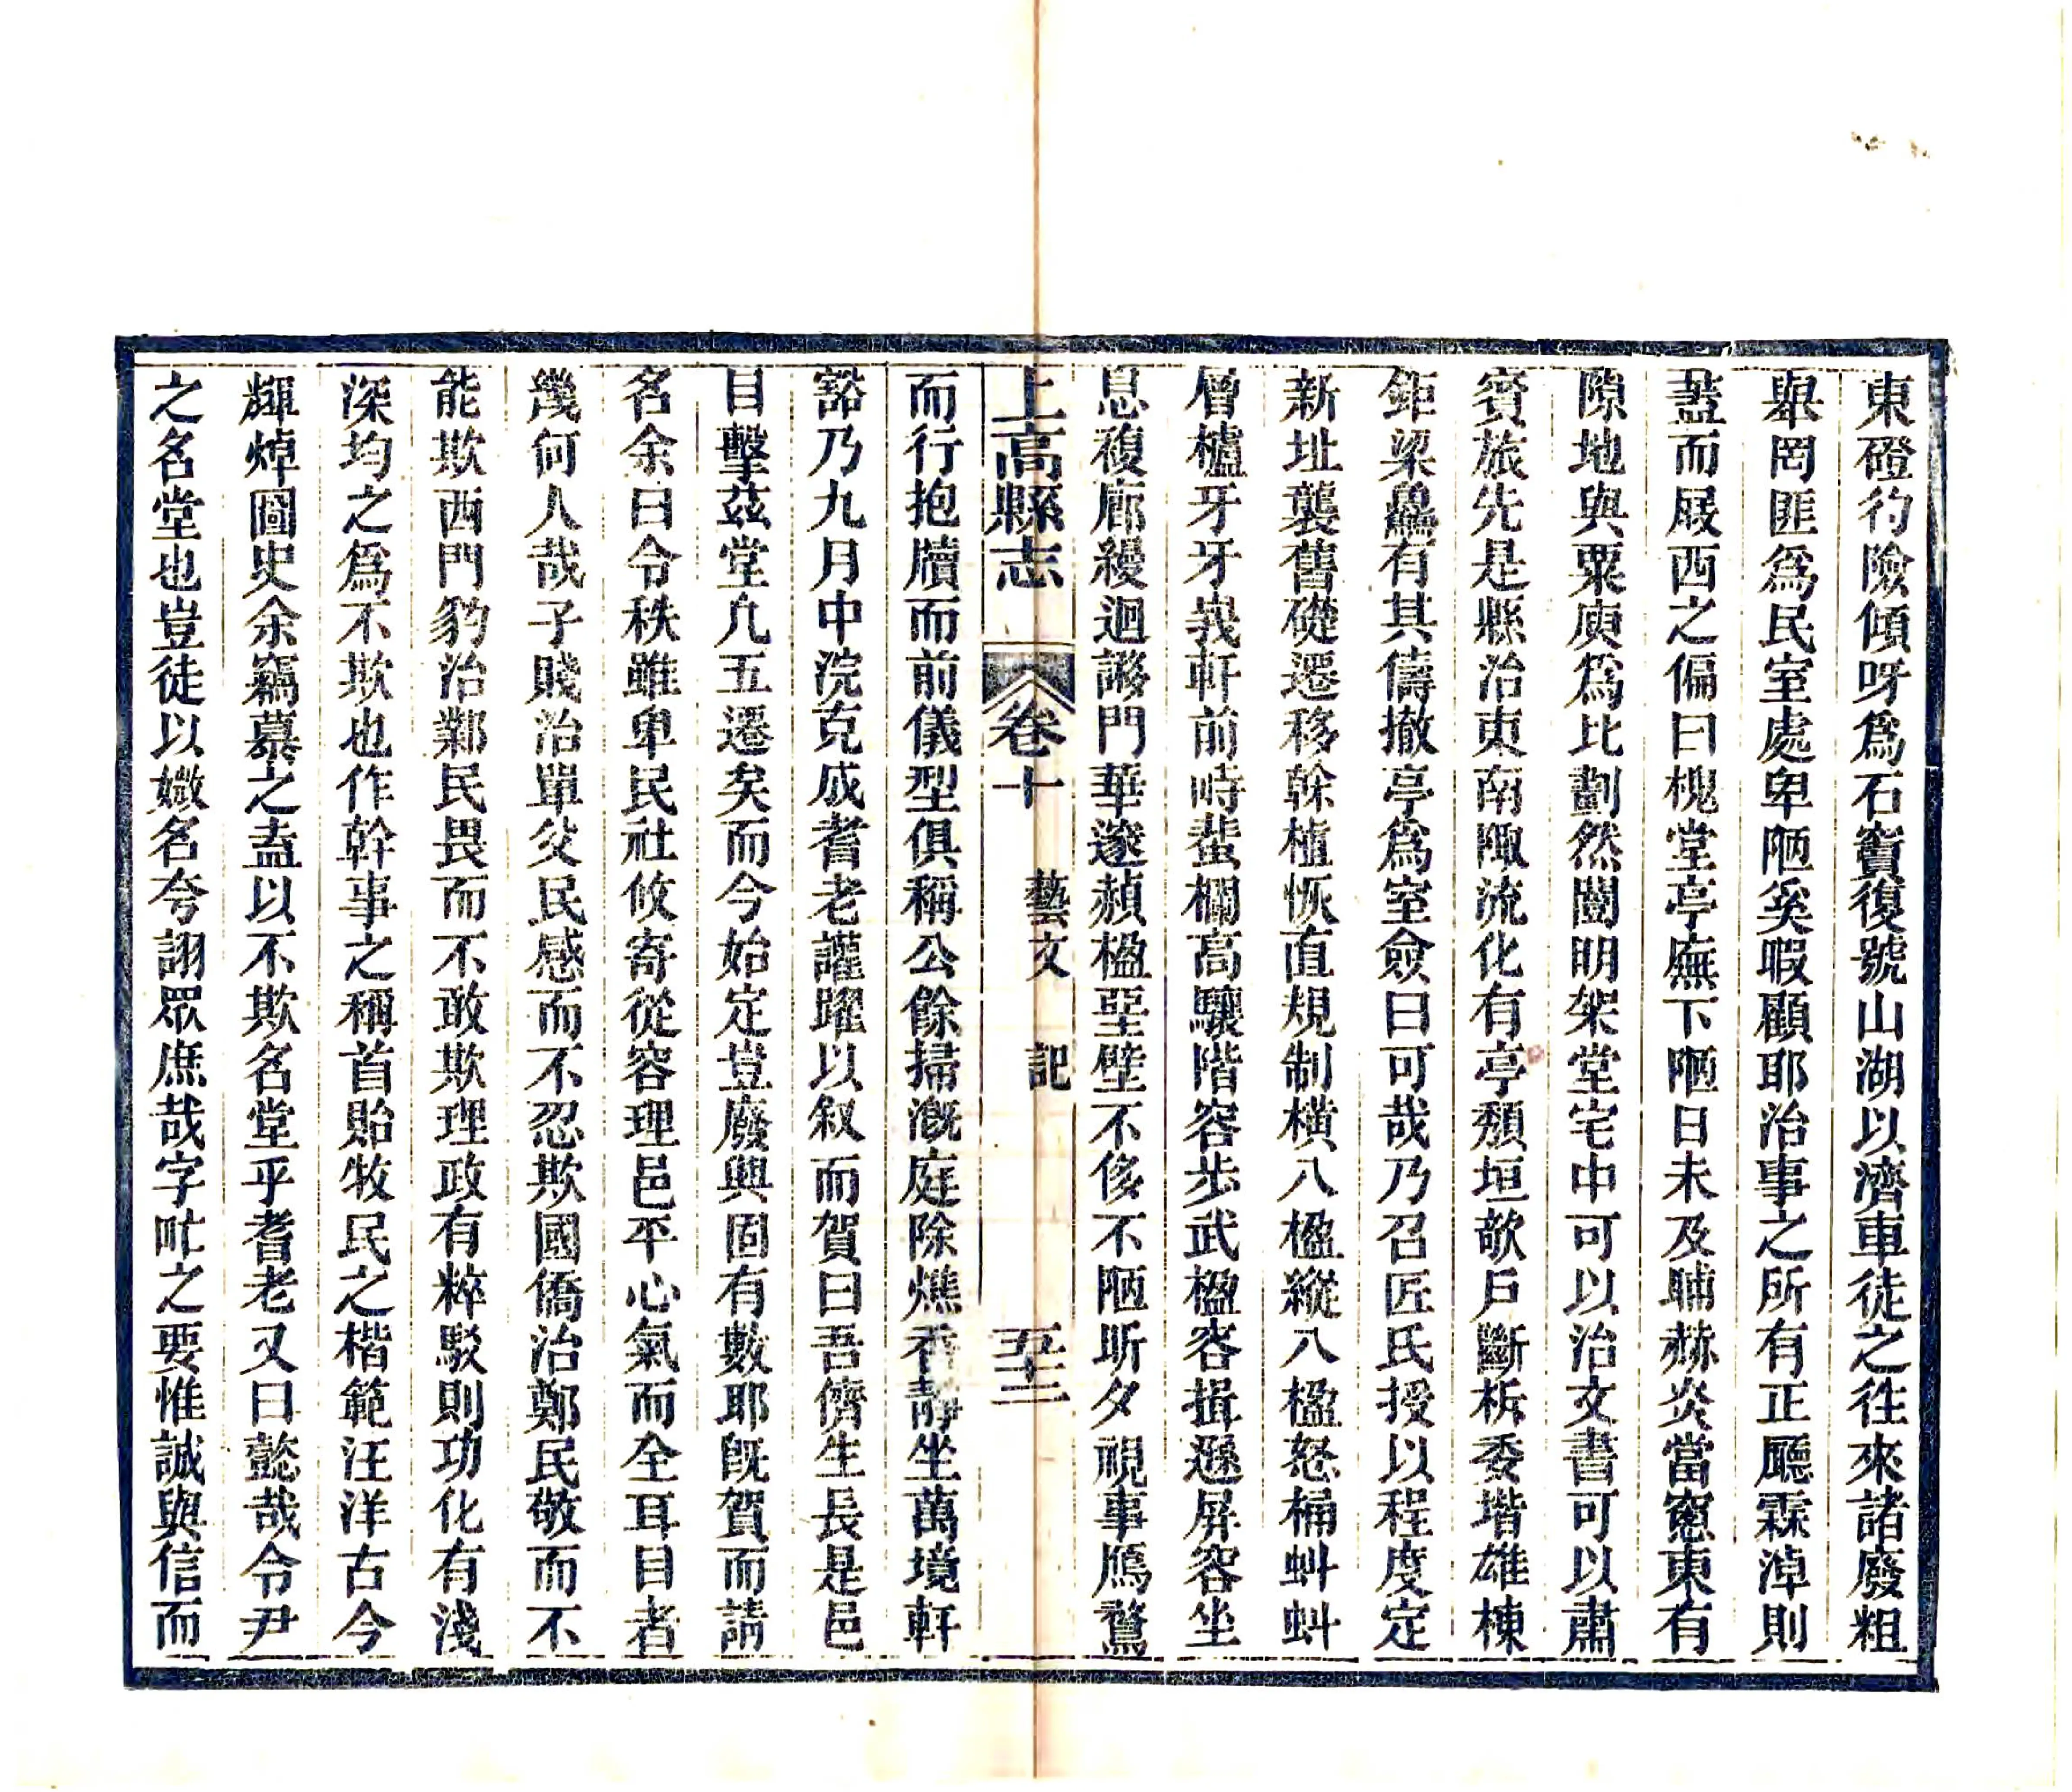 東磴彴險傾呀爲石竇復號山湖以濟車徒之往來諸廢粗
舉罔匪爲民室處卑陋奚暇顧耶治事之所有正廳霖淖則
蓋而屐西之偏曰槐堂亭廡下陋日未及晡赫炎當窻東有
隙地與粟庾爲比劃然闓明架堂宅中可以治文書可以肅
賓旅先是縣治東南陬流化有亭頽垣欹戶斷柝委堦雄棟
鉅梁驫有其儔撤亭爲室僉曰可哉乃召匠氏授以程度定
新址襲舊礎遷移幹植恢直規制橫八楹縱八楹怒桷蚪蚪
層櫨牙牙峩軒前峙蜚欄高驤階容步武楹容揖遜屏容坐
息複廊縵迴謻門華邃赬楹堊壁不侈不陋昕夕視事鴈鶩
上高縣志 卷十 藝文 記 五十二
而行抱牘而前儀型俱稱公餘掃漑庭除燋香靜坐萬境軒
豁乃九月中浣克成耆老讙躍以叙而賀曰吾儕生長是邑
目擊茲堂凡五遷矣而今始定豈廢興固有數耶旣賀而請
名余曰令秩雖卑民社攸寄從容理邑平心氣而全耳目者
幾何人哉子賤治單父民感而不忍欺國僑治鄭民敬而不
能欺西門豹治鄴民畏而不敢欺理政有粹駁則功化有淺
深均之爲不欺也作幹事之稱首貽牧民之楷範汪洋古今
輝焯圖史余竊慕之盍以不欺名堂乎耆老又曰懿哉令尹
之名堂也豈徒以媺名夸詡眾庶哉字甿之要惟誠與信而